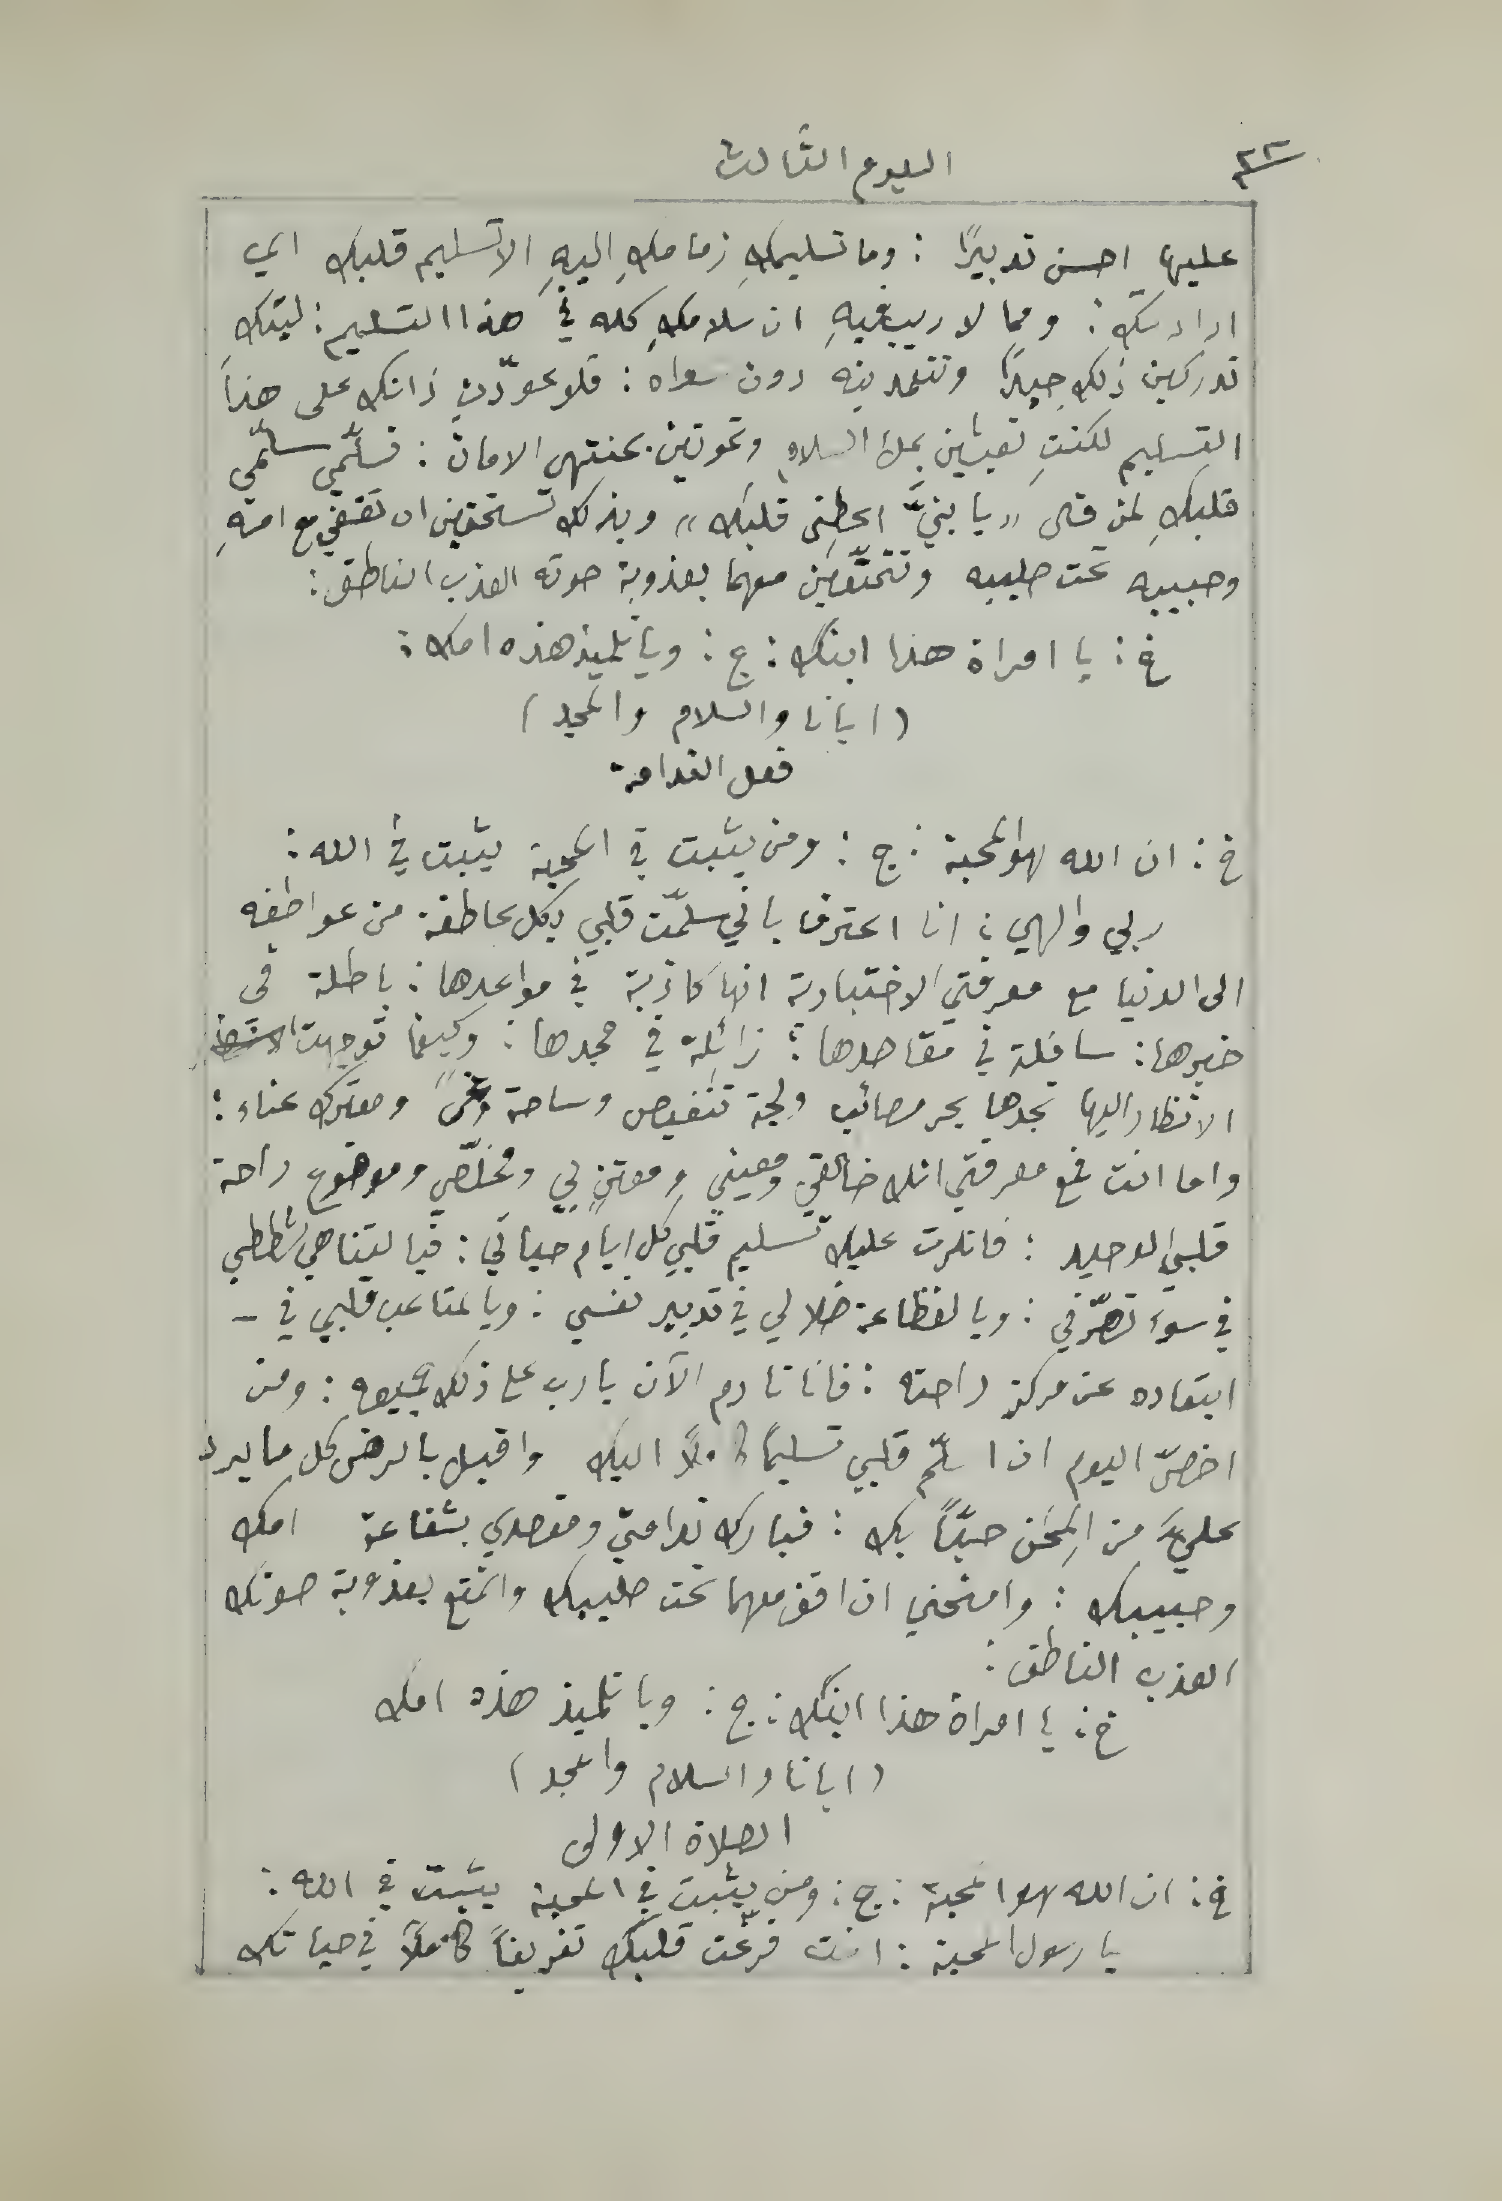 ٣٢
اليوم الثالث
عليها احسن تدبيرًا : وما تسليمكِ زمامكِ اليهِ الا تسليم قلبك اي
ارادتك : ومما لا ريب فيهِ ان سلامكِ كله في هذا التسليم : ليتكِ
تدركين ذلك جيدًا وتقصدينه دون سواه : فلو عوّدتِ ذاتك على هذا
التسليم لكنتِ تعيشين بملء السلام وتموتين بمنتهى الامان : فسلّمي سلّمي
قلبكِ لمن قال «يا بنيَّ اعطني قلبك» وبذلك تستحقين ان تقفي مع امهِ
وحبيبه تحت صليبه وتتمتّعين معهما بعذوبة صوته العذب الناطق :
خ : يا امراة هذا ابنك : ج : ويا تلميذ هذه امك :
( ابانا والسلام والمجد )
فعل الندامة
خ : ان الله هو المحبة : ج : ومن يثبت في المحبة يثبت في الله :
ربي والهي : انا اعترف باني سلّمت قلبي بكل عاطفة من عواطفه
الى الدنيا مع معرفتي الاختبارية انها كاذبة في مواعدها : باطلة في
خيرها : سافلة في مقاصدها : زائلة في مجدها : وكيفما توجهت
الانظار اليها تجدها بحر مصائب ولجة تنغيص وساحة ومعترك عناء :
واما انت فمع معرفتي انك خالقي ومعيني ومعتنٍ بي ومخلّصي وموضوع راحة
قلبي الوحيد : فانكرت عليك تسليم قلبي كل ايام حياتي : فيا لتناهي شططي
في سوء تصرّفي : ويا لفظاعة ضلالي في تدبير نفسي : ويا لمتاعب قلبي في –
ابتعاده عن مركز راحته : فانا نادم الآن يا رب على ذلك جميعه : ومن
اخصّ اليوم ان اسلّم قلبي تسليمًا كاملًا اليك واقبل بالرضى كل ما يرد
عليَّ من المِحَن حبًّا بك : فبارك ندامتي ومقصدي بشفاعة امك
وحبيبك : وامنحني ان اقف معهما تحت صليبك واتمتع بعذوبة صوتك
العذب الناطق :
خ : يا امراة هذا ابنك : ج : ويا تلميذ هذه امك
( ابانا والسلام والمجد )
الصلاة الاولى
خ : ان الله هو المحبة : ج : ومن يثبت في المحبة يثبت في الله :
يا رسول المحبة : انت فرّغت قلبك تفريغًا كاملًا في حياتك